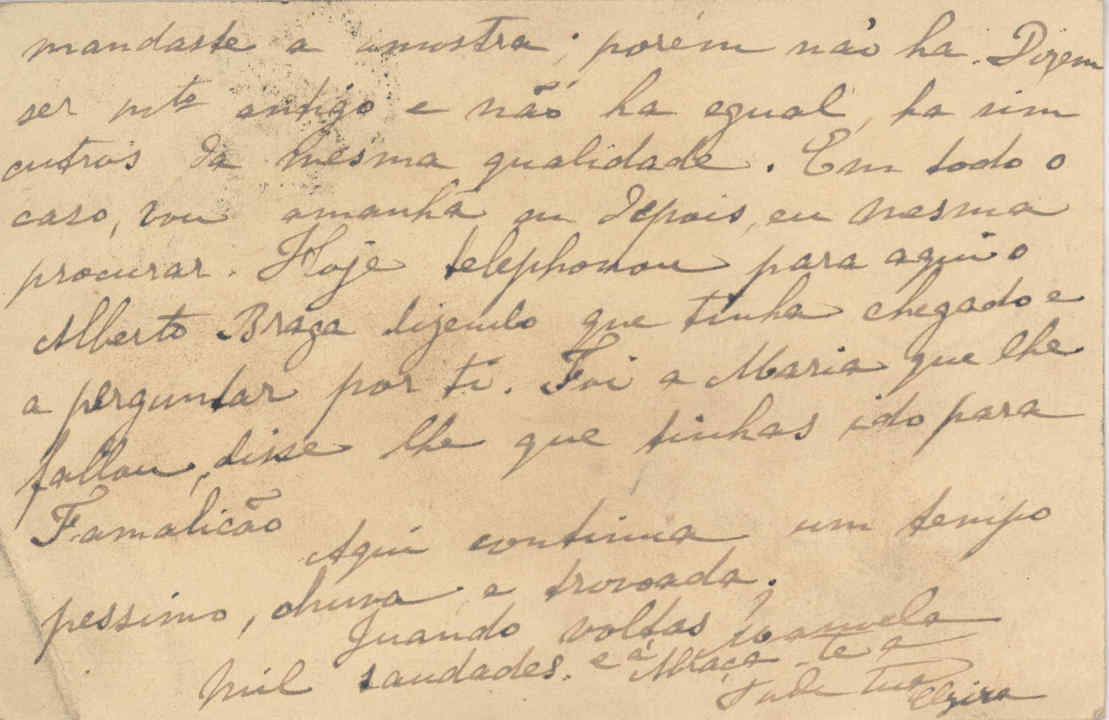 mandaste a amostra; porém não ha. Dizem
ser mto antigo e não ha egual, ha sim
outros da mesma qualidade. Em todo o
caso, vou amanhã ou depois, eu mesma
procurar. Hoje telephonou para aqui o
Alberto Braga dizendo que tinha chegado e
a perguntar por ti. Foi a Maria que lhe
fallou, disse lhe que tinhas ido para
Famalicão
Aqui continua um tempo
pessimo, chuva e trovoada.
Quando voltas
mil saudades. e Abraça-te a
tua Elzira